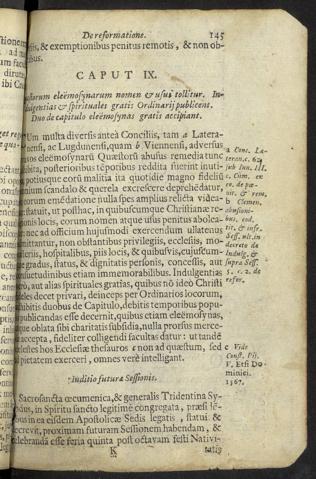 De reformatione. 145
sis, & exemptionibus penitus remotis, & non ob-
bus.
CAPUT IX.
storum eleëmosynarum nomen & usus tollitur. In-
dulgentias & spirituales gratias Ordinarij publicent.
Duo de capitulo eleëmosynas gratis accipiant.
Um multa diversis anteà Conciliis, tam a Latera-
nensi, ac Lugdunensi, quam b Viennensi, adversus
os eleëmosynarũ Quæstorũ abusus remedia tunc
bita, posterioribus tẽporibus reddita fuerint inuti-
potiusque eorũ malitia ita quotidie magno fidelium
nium scandalo & querela excrescere deprehẽdatur,
eorum emẽdatione nulla spes amplius relicta videa-
statuit, ut posthac, in quibuscumque Christianæ re-
ionis locis, eorum nomen atque usus penitus abolea-
nec ad officium hujusmodi exercendum ullatenus
mittantur, non obstantibus privilegiis, ecclesiis, mo-
teriis, hospitalibus, piis locis, & quibusvis, cujuscum-
gradus, status, & dignitatis personis, concessis, aut
suetudinibus etiam immemorabilibus. Indulgentias
rò, aut alias spirituales gratias, quibus nõ ideò Christi
deles decet privari, deinceps per Ordinarios locorum,
hibitis duobus de Capitulo, debitis temporibus popu-
publicandas esse decernit, quibus etiam eleëmosynas,
que oblata sibi charitatis subsidia, nulla prorsus merce-
accepta, fideliter colligendi facultas datur: ut tandẽ
lestes hos Ecclesiæ thesauros c non ad quæstum, sed
pietatem exerceri, omnes verè intelligant.
a Conc. La-
teran. c. 62
sub Inn. III.
c. Cùm. ex
eo. de pœ-
nit. & rem.
b Clemen.
abusioni-
bus. eod.
tit. & inf.
Sess. ult. in
decreto de
Indulg. &
supra Sess.
5. c. 2. de
refor.
c Vide
Const. Pij.
V. Etsi Do-
minici.
1567.
Indictio futuræ Sessionis.
Sacrosancta œcumenica, & generalis Tridentina Sy-
dus, in Spiritu sancto legitimè congregata, præsi-
bus in ea eisdem Apostolicæ Sedis legatis, statui &
crevit, proximam futuram Sessionem habendam, &
elebrandã esse feria quinta post octavam festi Nativi-
K tatis